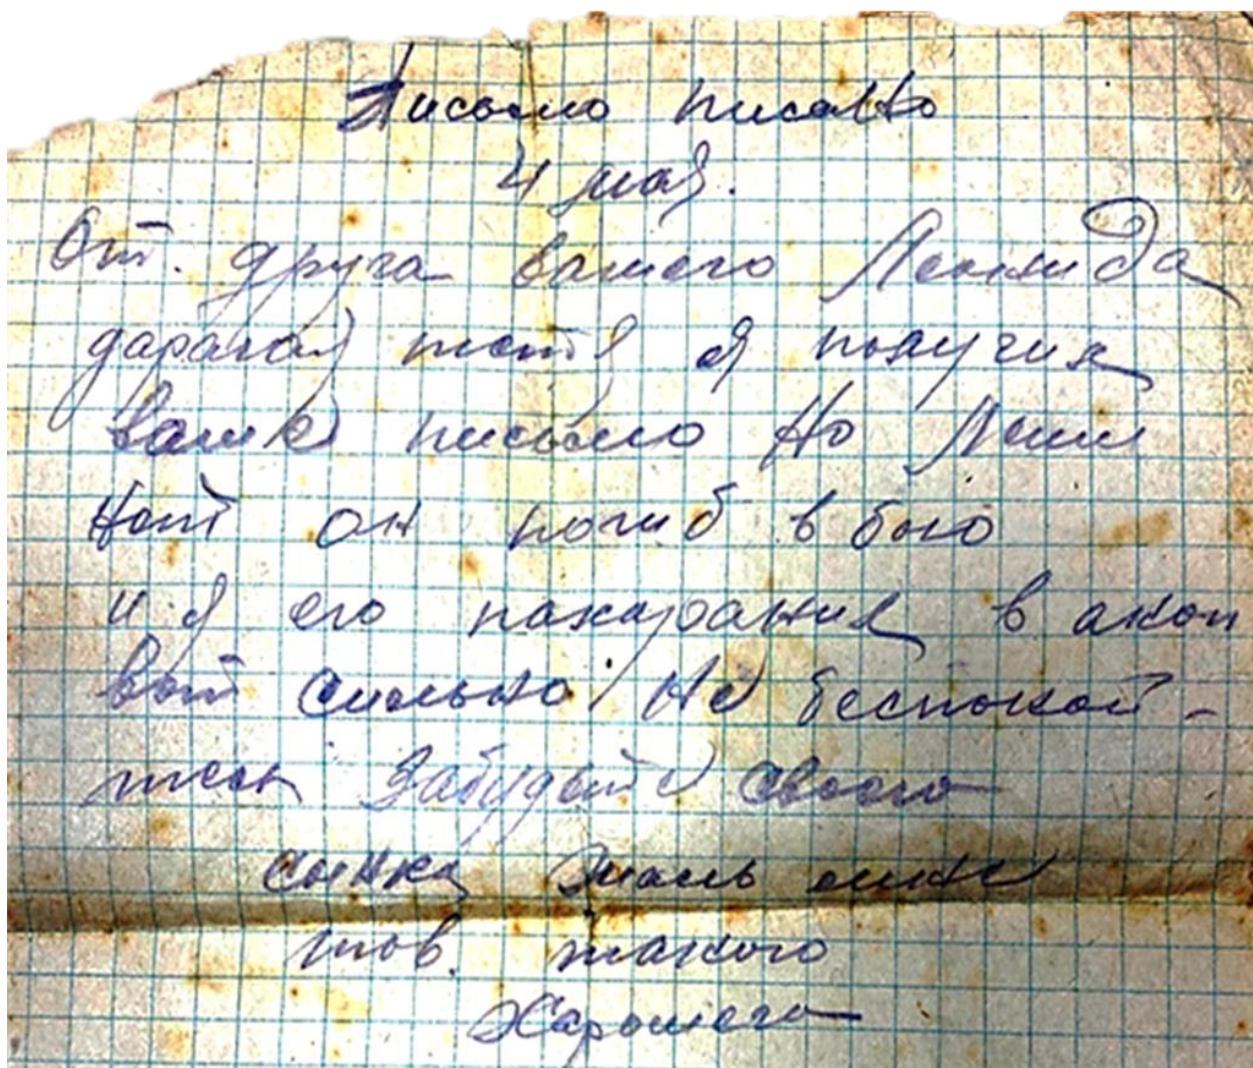 Письмо писано
4 мая.
От. друга вашего Леонида
дарагая тетя я получил
ваше письмо но Лени
нет он погиб в бою
и я его пахаранил в акоп
вот сильно не беспокой-
тесь забудьте своего
сынка жаль мне
тов. такого
Харошего